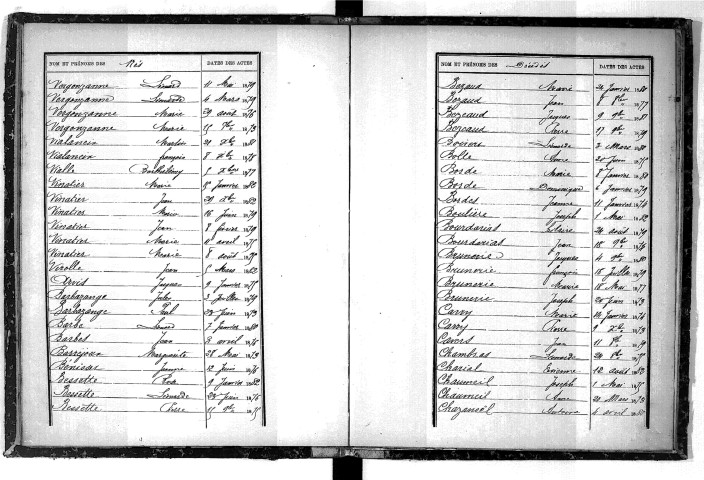 NOM ET PRÉNOMS DES Nés DATES DES ACTES
Vergonzanne Léonard 11 Mai 1879
Vergonzanne Léonarde 4 Mars 1879
Vergonzanne Marie 29 août 1876
Vergonzanne Marie 15 1873
Valancin Martin 21 1881
Valancin françois 8 1875
Vialle Barthélemy 5 1877
Vinatier Marie 15 Janvier 1882
Vinatier Jean 29 1882
Vinatier Marie 16 Juin 1879
Vinatier Jean 8 février 1879
Vinatier Marie 11 avril 1875
Vinatier Marie 8 août
Virolle Jean 5 Mars 1882
Jacques 9 Janvier
Barbazange Jules 3 Juillet 1879
Barbazange Paul 28 Juin 1873
Barbe Léonard 7 Janvier 1880
Barbes Jean 2 avril 1876
Barrejoux Marguerite 28 Mai 1873
Bonisue Jeanne 12 Juin 1876
Bessette Rose 9 Janvier 1882
Bessette Léonarde 28 Juin 1875
Bessette Pierre 15 1875
NOM ET PRÉNOMS DES Décédés DATES DES ACTES
Bozaud Marie 24 Janvier
Bozaud Jean 8 1877
Bozeaud Jacques 9 1881
Bozeaud Pierre 17 1879
Léonarde 2 Mars 1880
Bolle Anne 20 Juin 1875
Borde Marie 8 Janvier 1881
Borde Dominique 6 Janvier 1879
Bordes Jeanne 11 Janvier 1874
Joseph 1 Mai 1882
Bourdarias 20 août 1879
Bourdarias Jean 18 1876
Brunerie Jacques 4 1880
Brunerie françois 18 Juillet 1879
Brunerie Marie 18 Mai 1877
Brunerie Joseph 28 Juin 1873
Carvy Marie 12 Janvier 1874
Carvy Pierre 9 1873
Jean 11 1879
Chambras Léonarde 20 1875
Charial Etienne 12 août 1882
Chaumeil Joseph 1 Mai 1875
Chaumeil Anne 21 Mars 1873
Chazaneil Antoine 4 avril